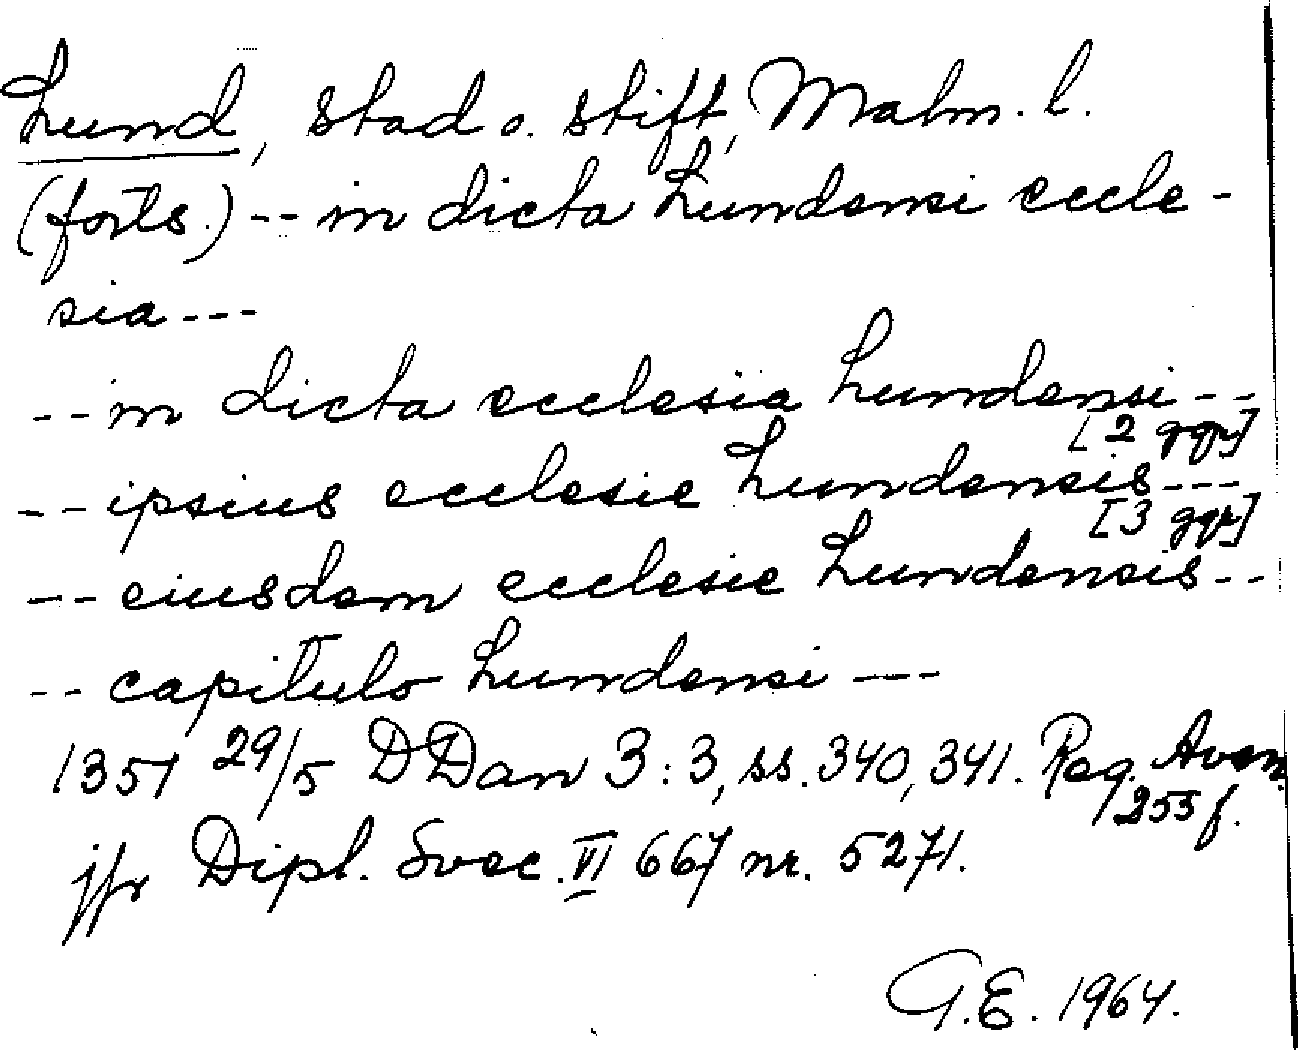 Lund, stad o. stift, Malm. l.
(forts.) -- in dicta Lundensi eccle-
sia ---
-- in dicta ecclesia Lundensi --
[2 ggr]
-- ipsius ecclesie Lundensis ---
[3 ggr]
-- eiusdem ecclesie Lundensis --
-- capitulo Lundensi ---
1351 29/5 DDan 3:3, ss. 340, 341. Reg. Aven.
253 f.
jfr Dipl. Svec. VI 667 nr. 5271.
G.E. 1964.